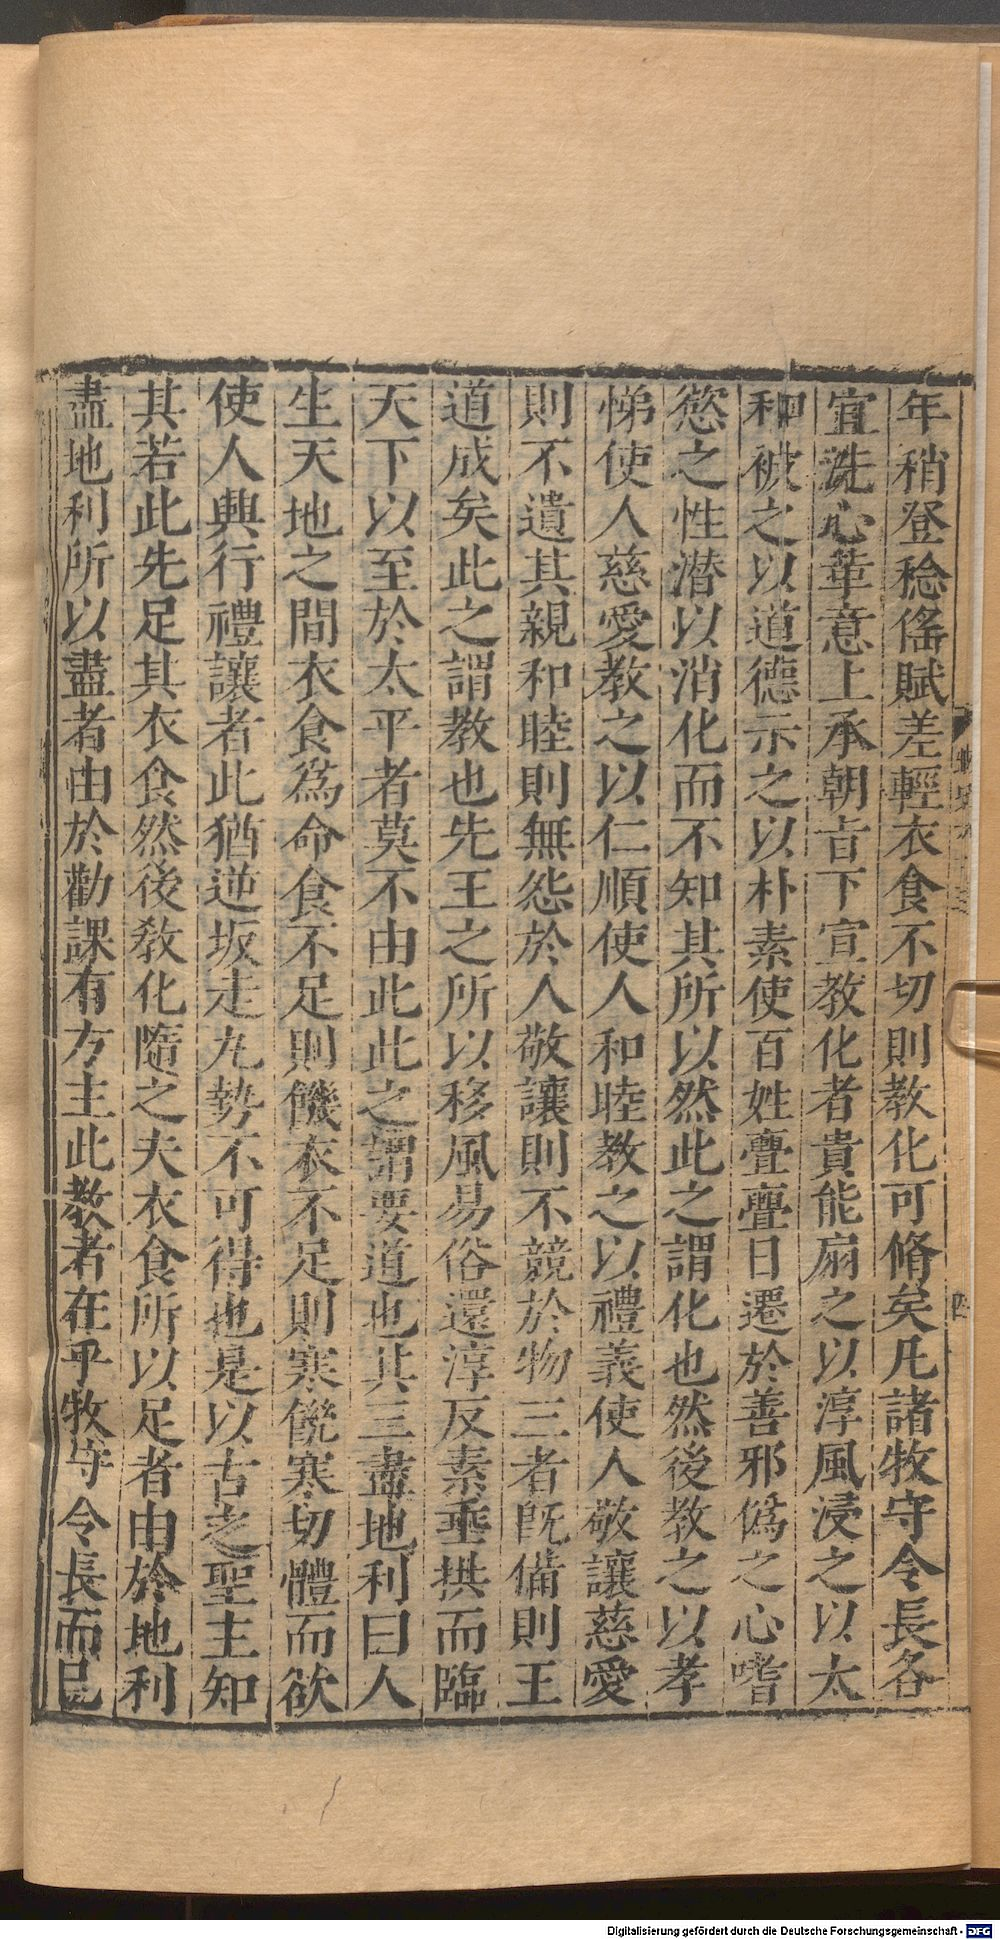 年稍登稔傜賦差輕衣食不切則教化可脩矣凡諸牧守令長各
宜洗心革意上承朝旨下宣教化者貴能扇之以淳風浸之以太
和被之以道德示之以朴素使百姓亹亹日遷於善邪僞之心嗜
慾之性潜以消化而不知其所以然此之謂化也然後教之以孝
悌使人慈愛教之以仁順使人和睦教之以禮義使人敬讓慈愛
則不遺其親和睦則無怨於人敬讓則不競於物三者旣備則王
道成矣此之謂教也先王之所以移風易俗還淳反素垂拱而臨
天下以至於太平者莫不由此此之謂要道也其三盡地利曰人
生天地之間衣食爲命食不足則饑衣不足則寒饑寒切體而欲
使人興行禮讓者此猶逆坂走丸勢不可得也是以古之聖主知
其若此先足其衣食然後教化隨之夫衣食所以足者由於地利
盡地利所以盡者由於勸課有方主此教者在乎牧守令長而已
四
Digitalisierung gefördert durch die Deutsche Forschungsgemeinschaft - DFG